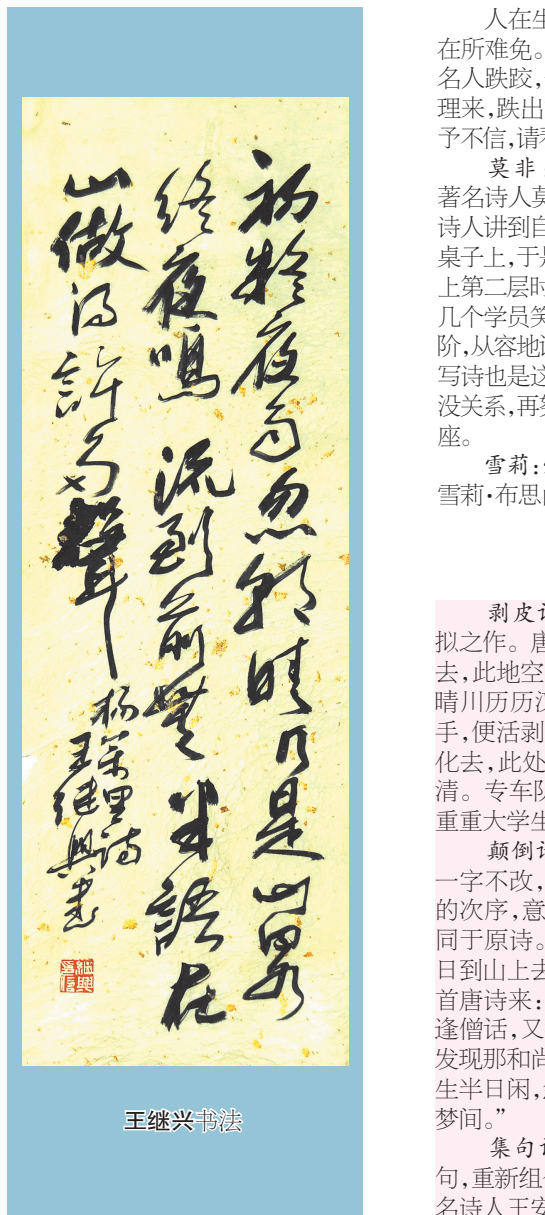 初疑夜雨忽朝晴乃是山泉
终夜鳴流到前無半語在
山做得許多聲
杨萬里诗
王继興書
王继兴书法
人在生
在所难免。
名人跌跤,
理来,跌出
予不信,请
莫非
著名诗人莫
诗人讲到自
桌子上,于是
上第二层时
几个学员笑
阶,从容地
写诗也是这
没关系,再
座。
雪莉:
雪莉·布思
剥皮
拟之作。唐
去,此地空
晴川历历汉
手,便活剥
化去,此处
清。专车队
重重大学生
颠倒
一字不改,
的次序,意
同于原诗。
日到山上去
首唐诗来:
逢僧话,又
发现那和尚
生半日闲,
梦间。”
集句
句,重新组
名诗人王安